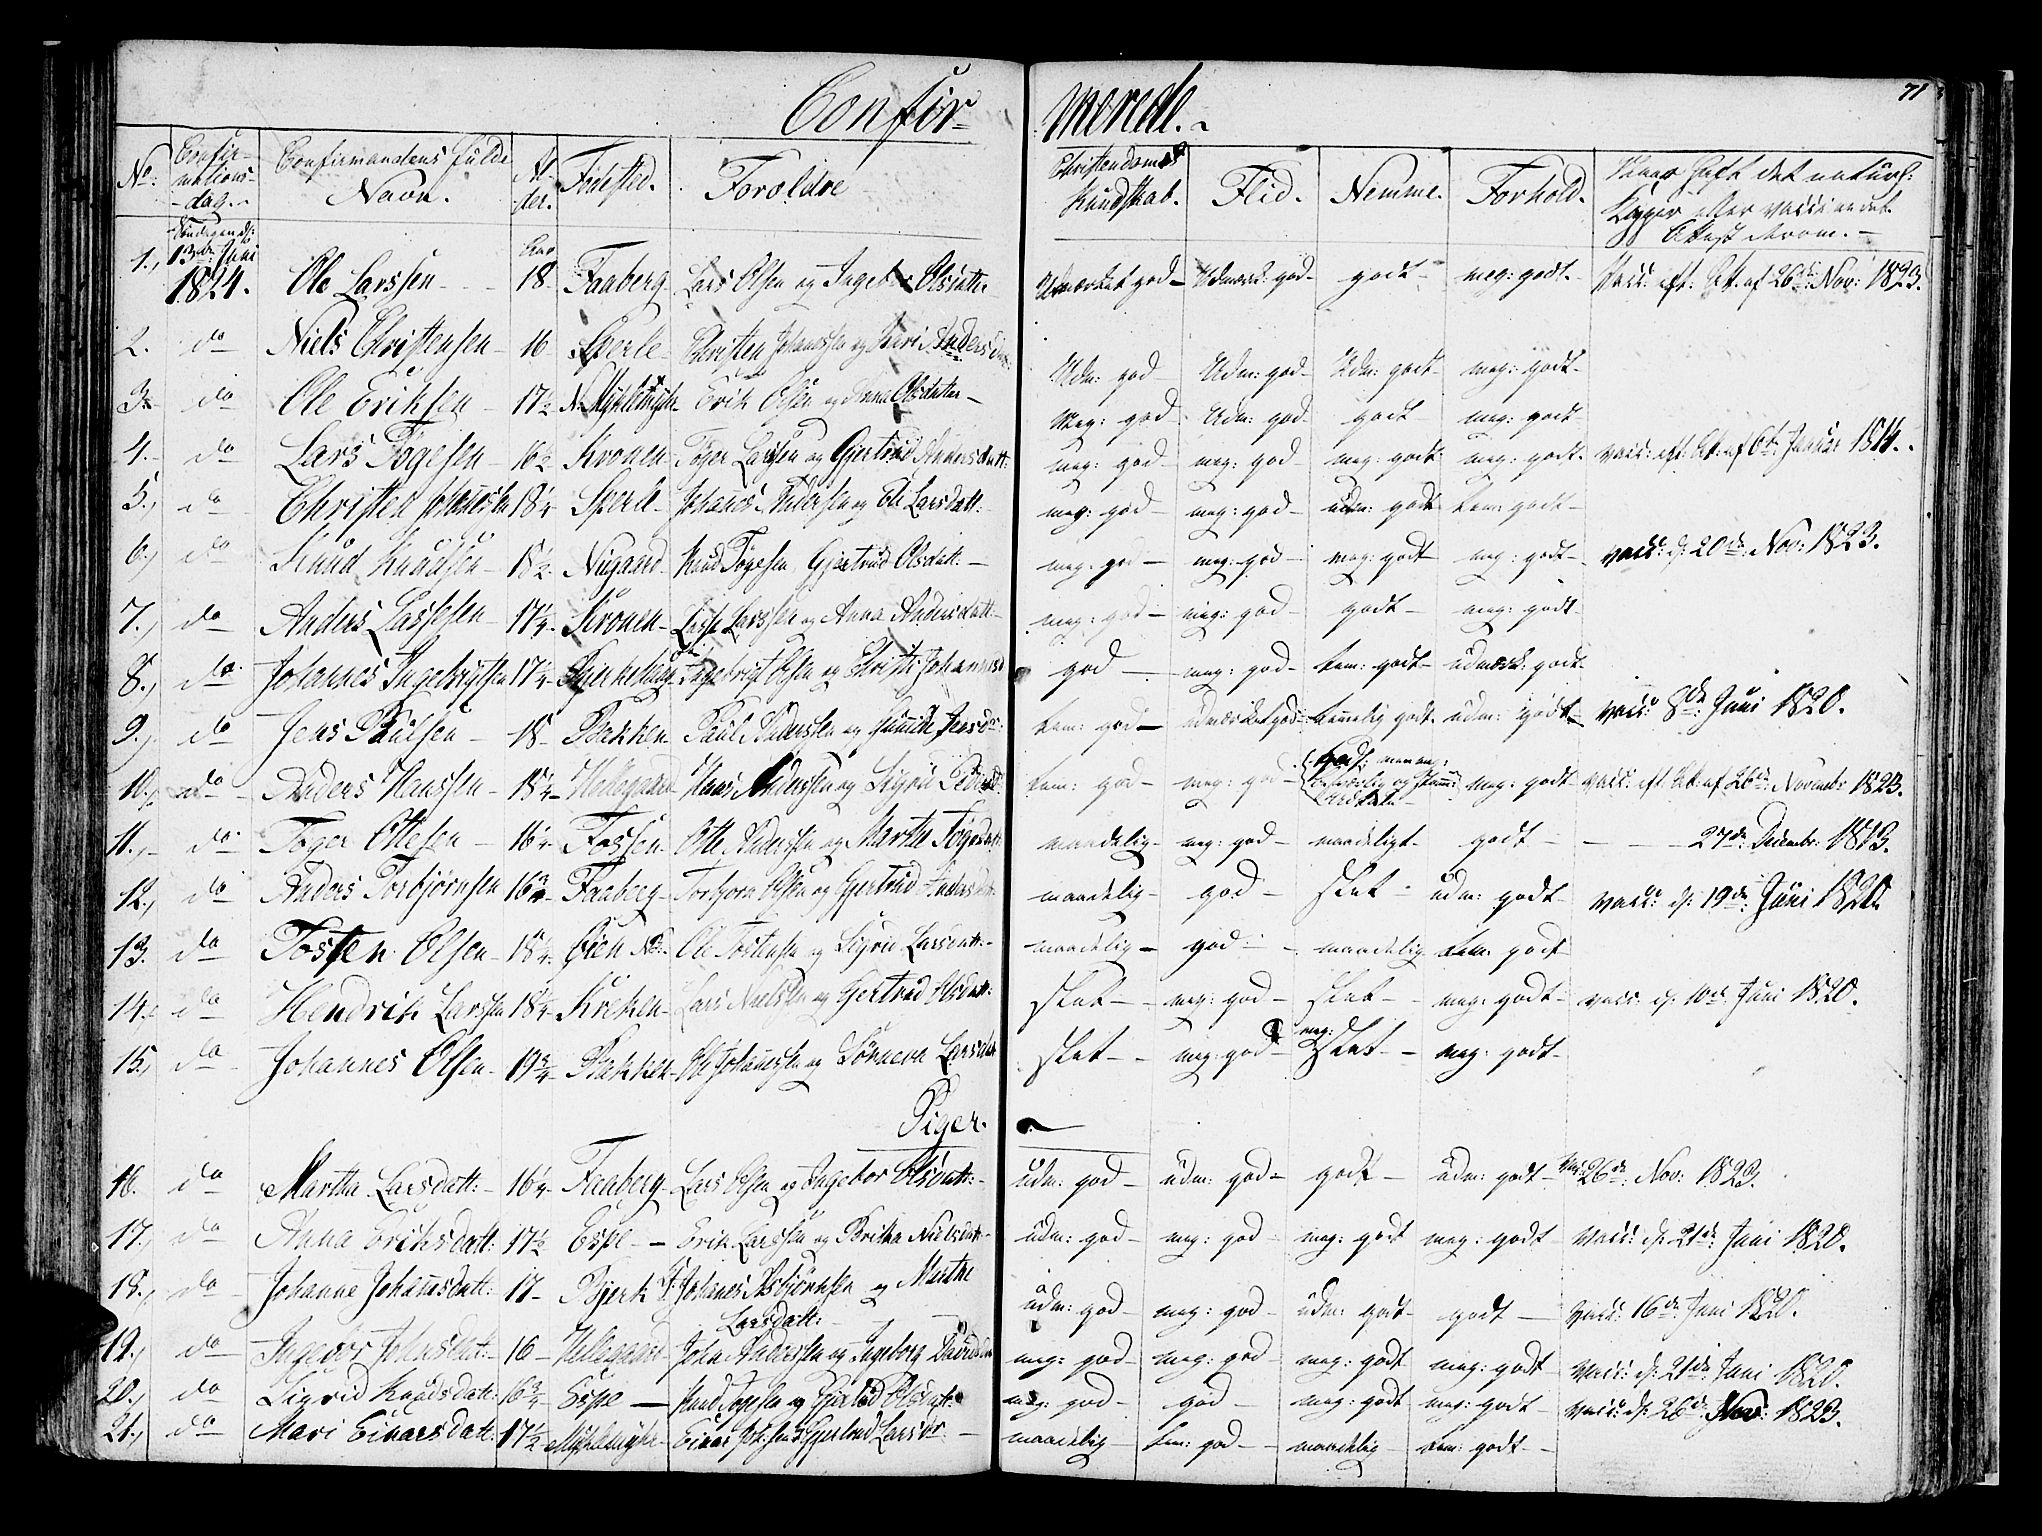 Confir- merede.
71
No: Confir- mations- dag. Confirmandens fulde Navn. Al- der. Fødested. Foroldre Christendoms Kundskab. Flid. Nemme. Forhold. Havt det naturl: Kopper eller vaccineredes Attest derom.
1., Søndagen d: 13de Juni 1824. Ole Larssen 18 Faaberg Lars Olsen og Ingebor Olsdatter Udmærket god Udmærk: god godt meg: godt Vacc: eft: At: af 26de Nov: 1823.
2. do Niels Christensen 16 Sperle Christen Johanssen og Kari Andersdatt: Udm: god Udm: god Udm: godt meg: godt
3. do Ole Eriksen 17½ N. Myklemyhr Erik Olsen og Anna Olsdatter Meg: god Udm: god godt meg: godt
4. do Lars Tøgesen 16½ Kronen Tøger Larssen og Gjertrud Andersdatt: meg: god meg: god meg: godt meg: godt vacc: eft: At: af 6te Januar 1814.
5., do Christen Johannessen 18¼ Sperle Johannes Anderssen og Eli Larsdatt: meg: god meg: god udm: godt tem: godt
6., do Knud Knudsen 18½ Nigaard Knud Tøgesen Gjertrud Olsdatt: meg: god meg: god meg: godt meg: godt vacc: d: 20de Nov: 1823.
7., do Anders Lassesen 17¼ Kronen Lasse Larssen og Anna Andersdatt: meg: god meg: god godt meg: godt
8., do Johannes Ingebrigtsen 17¼ Bjerkehaug Ingebrigt Olsen og Christi Johannesd god meg: god tem: godt udmærk: godt
9., do Jens Paulsen 18 Bakken Paul Anderssen og Gunnild Jensdr: tem: god udmærket god temmelig godt udm: godt vacc: 8de Juni 1820.
10., do Anders Hanssen 18¼ Hellegaard Hans Anderssen og Sigrid Pedersd: tem: god meg: god godt: meg: godt vacc: eft: At: af 26de Novemb: 1823.
11., do Tøger Ottesen 16¼ Fossen Otte Anderssen og Marthe Tøgesdatt: maadelig meg: god maadeligt godt 27de Decembr: 1813.
12., do Anders Torbjørnsen 16¾ Faaberg Torbjørn Olsen og Gjertrud Andersdr: maadelig god slet udm: godt vacc: d: 19de Juni 1820
13. do Tosten Olsen 18¼ Øien Ole Tostensen og Sigrid Larsdatt: maadelig god maadelig tem: godt
14. do Hendrik Larssen 18¼ Kreken Lars Nielsen og Gertrud Olsdatt: slet meg: god slet meg: godt vacc: d: 10de Juni 1820.
15., do Johannes Olsen 19¾ Bakken Ole Johannessen og Sønneva Larsdatt slet meg: god meg: slet meg: godt
Piger.
16. do Martha Larsdatt: 16¼ Faaberg Lars Olsen og Ingebor Olsdatt: udm: god udm: god godt udm: godt vac: 26de Nov: 1823.
17., do Anna Eriksdatt: 17½ Espe Erik Larssen og Britha Nielsdatt: udm: god meg: god meg: godt meg: godt vacc: d: 21de Juni 1820.
18., do Johanne Johannesdatt: 17 Bjerk Johannes Asbjørnsen og Marthe Larsdatt: udm: god meg: god udm: godt godt vacc: 16de Juni 1820.
19., do Ingebor Johnsdatt: 16 Hellegaard John Anderssen og Ingeborg Davidsdr meg: god meg: god meg: godt meg: godt vacc: d: 21de Juni 1820.
20., do Sigrid Knudsdatt: 16¾ Espe Knud Tøgesen og Gjertrud Olsdatt: meg: god god meg: godt meg: godt vacc: d: 26de Nov: 1823.
21., do Mari Einarsdatt: 17½ Myklemyhr Einar Johssen og Gjertrud Larsdr. maadelig tem: god maadelig tem: godt